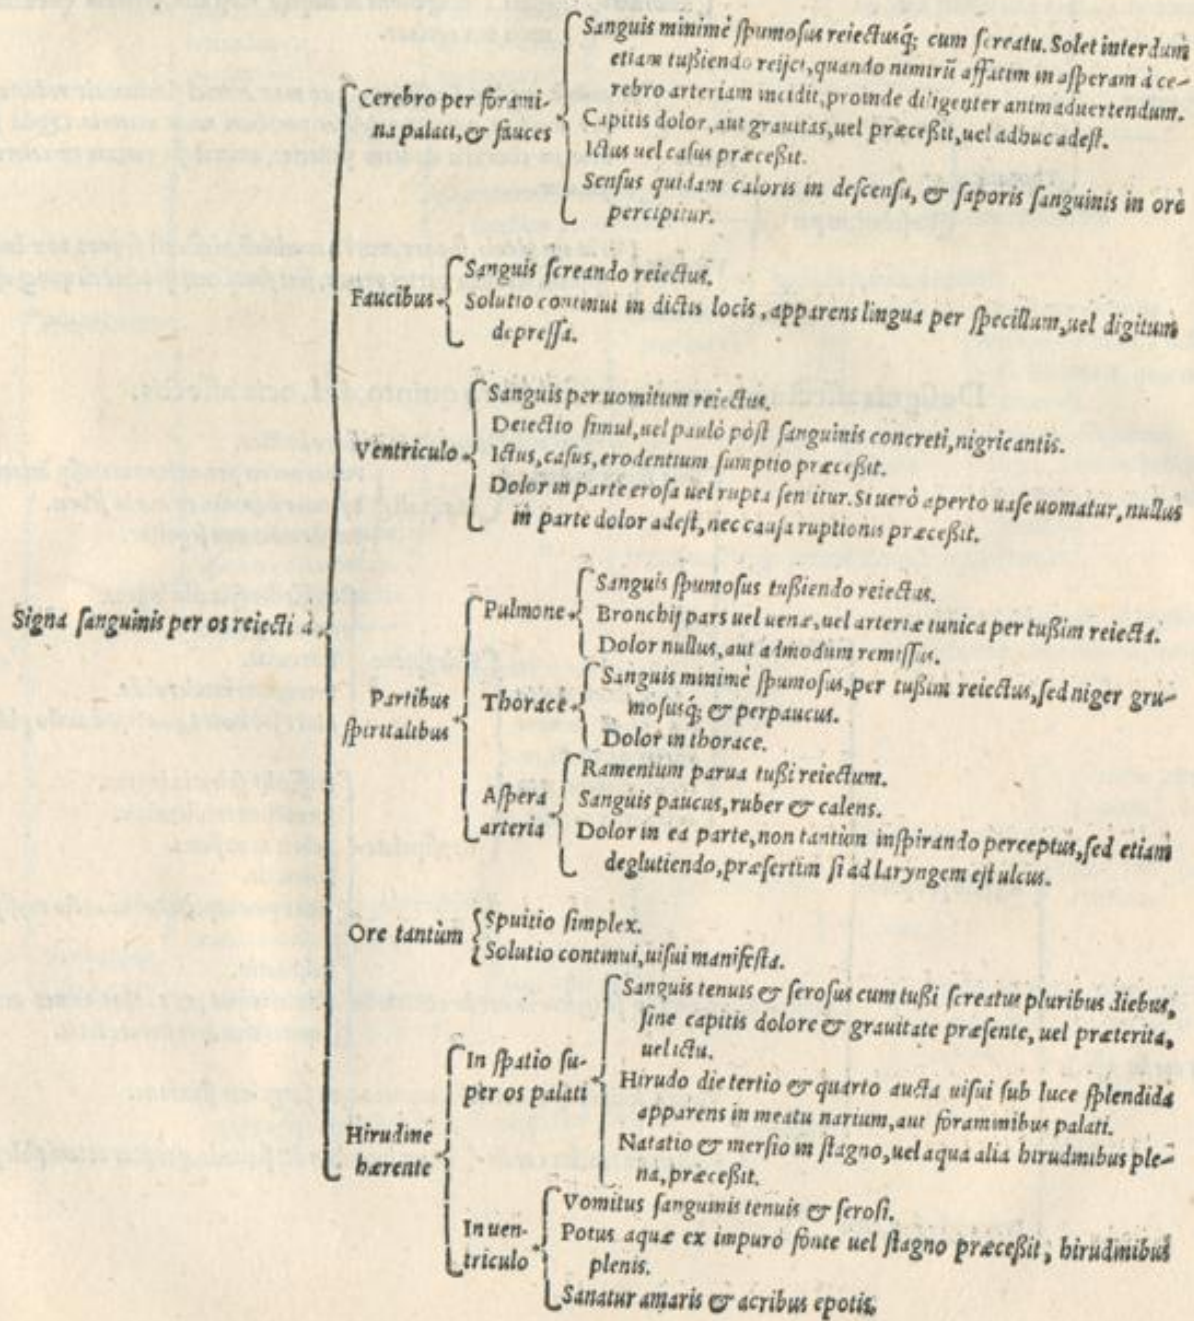 Sanguis minimè ſpumoſus reiectusq́; cum ſcreatu. Solet interdum
etiam tußiendo reijci, quando nimirũ affatim in aſperam à ce-
rebro arteriam incidit, proinde diligenter animaduertendum.
Cerebro per forami-
na palati, & fauces
Capitis dolor, aut grauitas, uel præceßit, uel adhuc adeſt.
Ictus uel caſus præceßit.
Senſus quidam caloris in deſcenſa, & ſaporis ſanguinis in ore
percipitur.
Faucibus
Sanguis ſcreando reiectus.
Solutio continui in dictis locis, apparens lingua per ſpecillum, uel digitum
depreſſa.
Ventriculo
Sanguis per uomitum reiectus.
Deiectio ſimul, uel paulò pòſt ſanguinis concreti, nigricantis.
Ictus, caſus, erodentium ſumptio præceßit.
Dolor in parte eroſa uel rupta ſentitur. Si uerò aperto uaſe uomatur, nullus
in parte dolor adeſt, nec cauſa ruptionis præceßit.
Signa ſanguinis per os reiecti à
Partibus
ſpiritalibus
Pulmone
Sanguis ſpumoſus tußiendo reiectus.
Bronchij pars uel uenæ, uel arteriæ tunica per tußim reiecta.
Dolor nullus, aut admodum remiſſus.
Thorace
Sanguis minimè ſpumoſus, per tußim reiectus, ſed niger gru-
moſusq́; & perpaucus.
Dolor in thorace.
Aſpera
arteria
Ramentum parua tußi reiectum.
Sanguis paucus, ruber & calens.
Dolor in ea parte, non tantùm inſpirando perceptus, ſed etiam
deglutiendo, præſertim ſi ad laryngem eſt ulcus.
Ore tantùm
Spuitio ſimplex.
Solutio continui, uiſui manifeſta.
Hirudine
hærente
In ſpatio ſu-
per os palati
Sanguis tenuis & ſeroſus cum tußi ſcreatus pluribus diebus,
ſine capitis dolore & grauitate præſente, uel præterita,
uel ictu.
Hirudo die tertio & quarto aucta uiſui ſub luce ſplendida
apparens in meatu narium, aut foraminibus palati.
Natatio & merſio in ſtagno, uel aqua alia hirudinibus ple-
na, præceßit.
In uen-
triculo
Vomitus ſanguinis tenuis & ſeroſi.
Potus aquæ ex impuro fonte uel ſtagno præceßit, hirudinibus
plenis.
Sanatur amaris & acribus epotis.